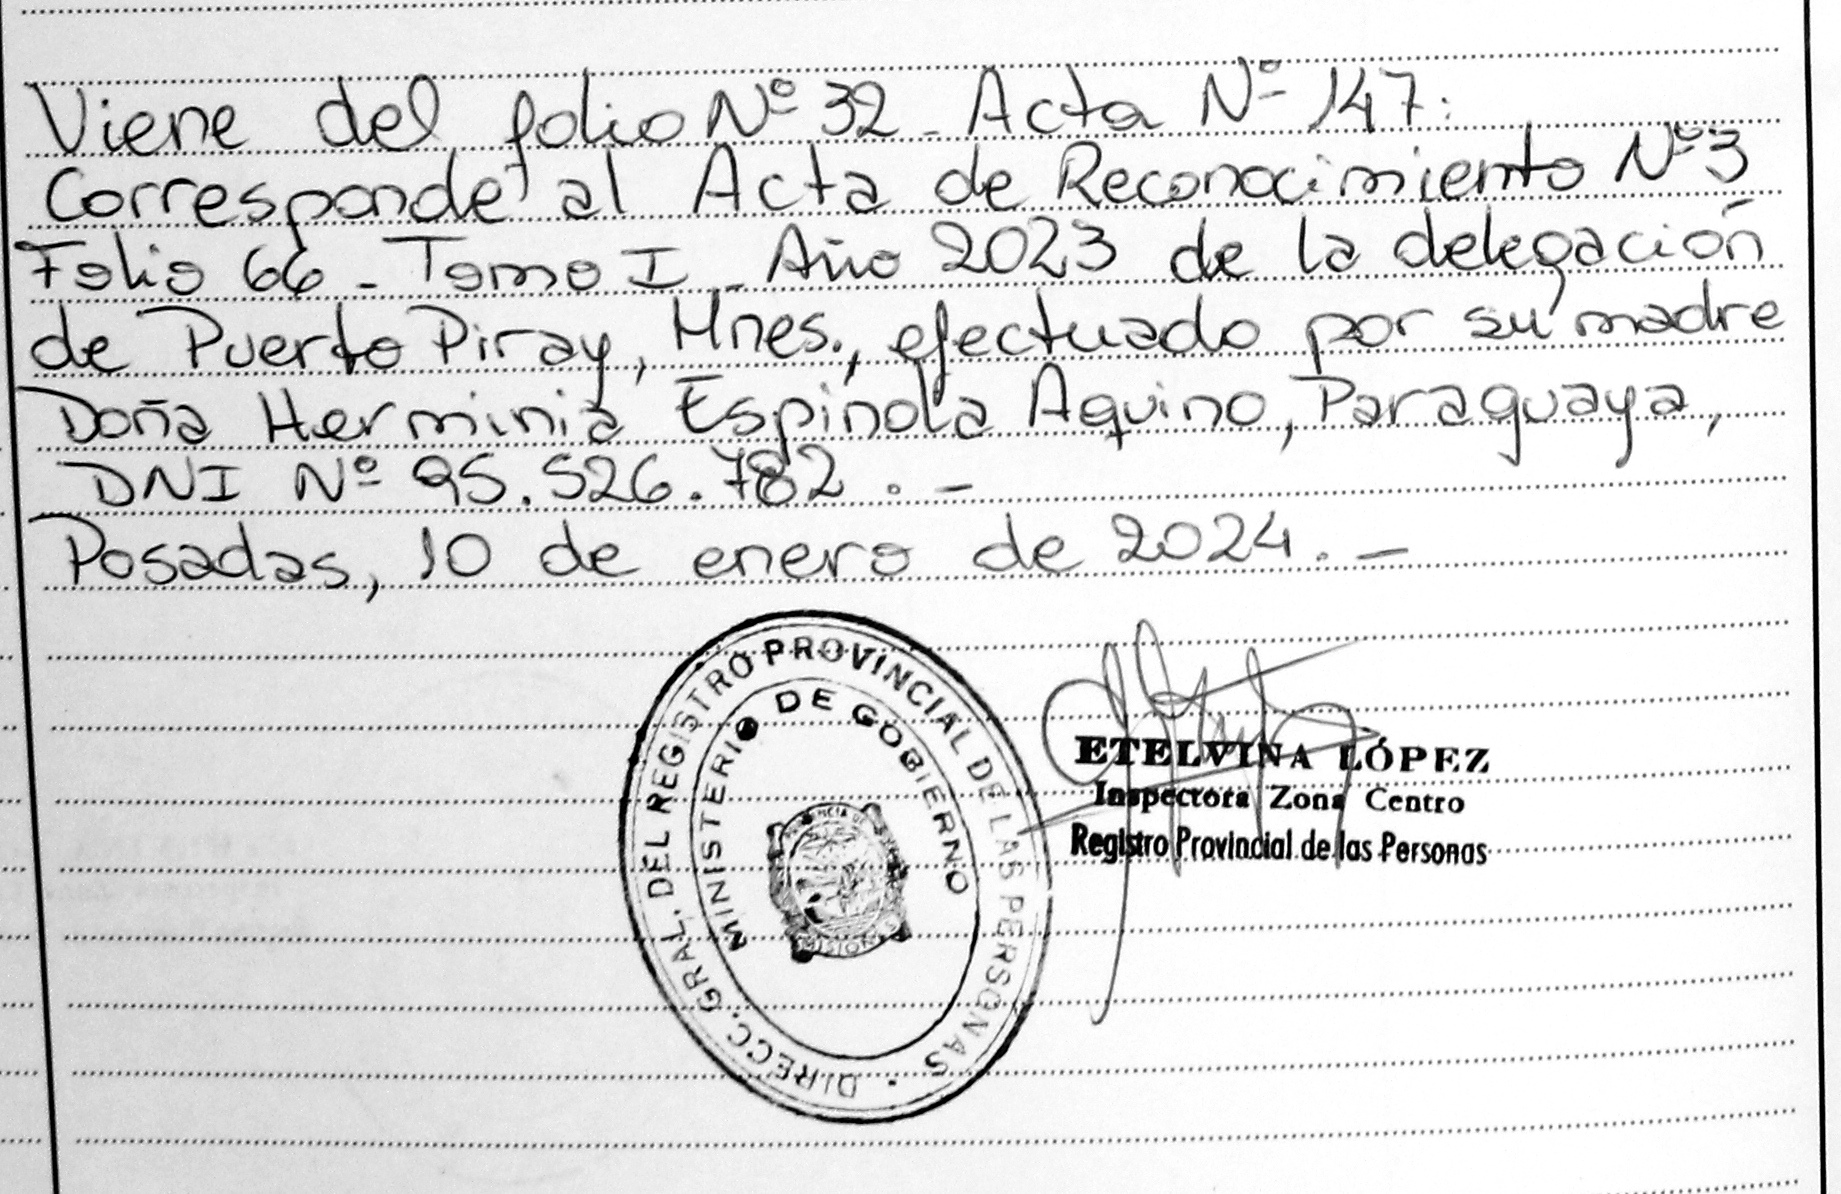 Viene del folio Nº 32 - Acta Nº 147:
Corresponde al Acta de Reconocimiento Nº 3
Folio 66 - Tomo I - Año 2023 de la delegación
de Puerto Piray, Mnes., efectuado por su madre
Doña Herminia Espínola Aquino, Paraguaya,
DNI Nº 95.526.782 . -
Posadas, 10 de enero de 2024. -
DIRECC. GRAL. DEL REGISTRO PROVINCIAL DE LAS PERSONAS
MINISTERIO DE GOBIERNO
PROVINCIA DE
MISIONES
ETELVINA LÓPEZ
Inspectora Zona Centro
Registro Provincial de las Personas